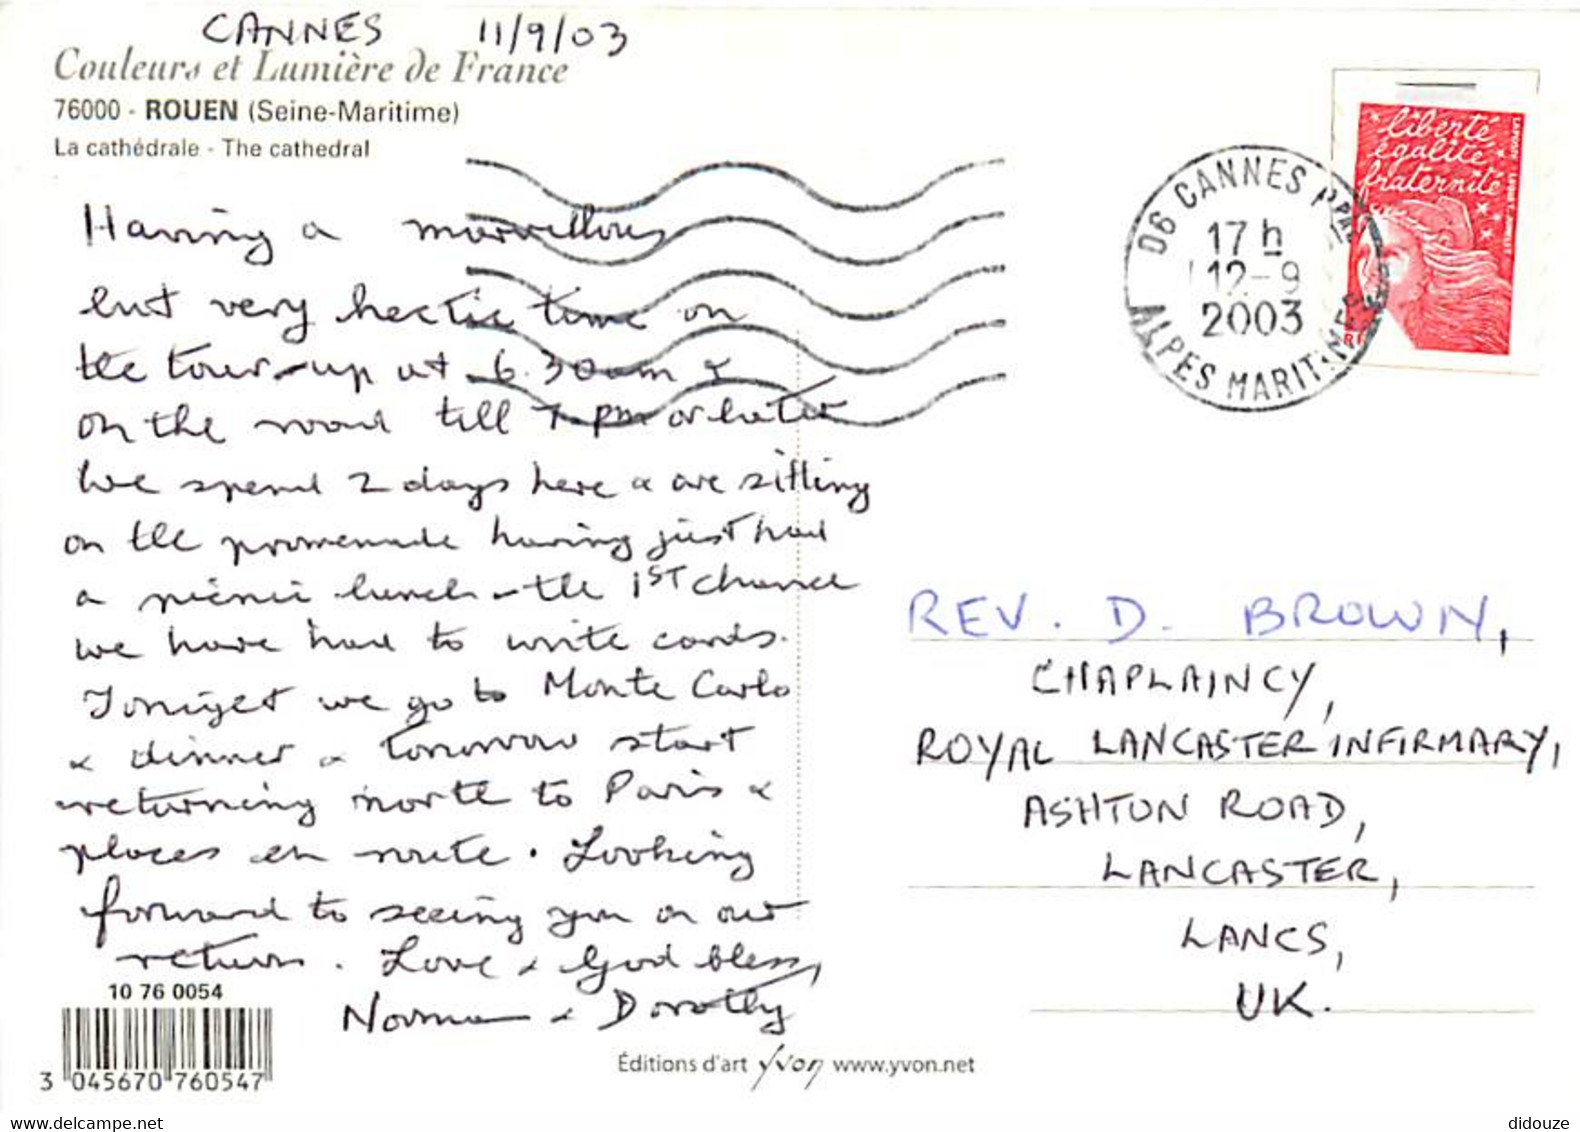 CANNES 11/9/03
Couleurs et Lumière de France
76000 - ROUEN (Seine-Maritime)
La cathédrale - The cathedral
Having a marvellous
but very hectic time on
the tour-up at 6.30am &
on the road till 7 pm or later
We spend 2 days here & are sitting
on the promenade having just had
a picnic lunch - the 1ST chance
we have had to write cards.
Tonight we go to Monte Carlo
& dinner & tomorrow start
returning north to Paris &
places en route. Looking
forward to seeing you on our
return. Love & God bless,
Norman & Dorothy
10 76 0054
3 045670 760547
Éditions d'art yvon www.yvon.net
liberté
égalité
fraternité
LA POSTE
RF
06 CANNES PPAL
17 h
12-9
2003
ALPES MARITIMES
REV. D. BROWN,
CHAPLAINCY,
ROYAL LANCASTER INFIRMARY,
ASHTON ROAD,
LANCASTER,
LANCS,
UK.
didouze